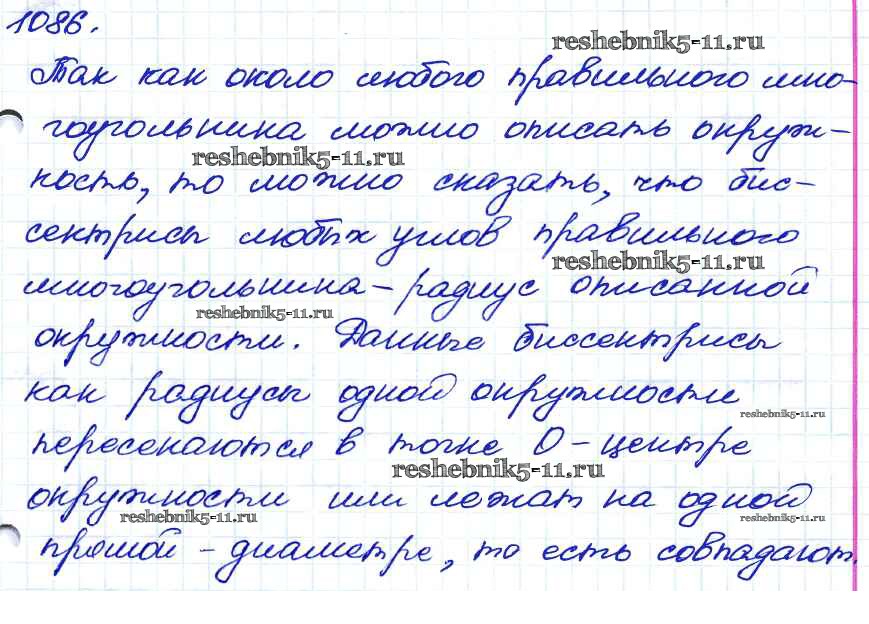 1086.
reshebnik5-11.ru
Так как около любого правильного мно-
гоугольника можно описать окруж-
reshebnik5-11.ru
ность, то можно сказать, что бис-
сектрисы любых углов правильного
reshebnik5-11.ru
многоугольника - радиус описанной
reshebnik5-11.ru
окружности. Данные биссектрисы
как радиусы одной окружности
reshebnik5-11.ru
пересекаются в точке О - центре
reshebnik5-11.ru
окружности или лежат на одной
reshebnik5-11.ru
reshebnik5-11.ru
прямой - диаметре, то есть совпадают.